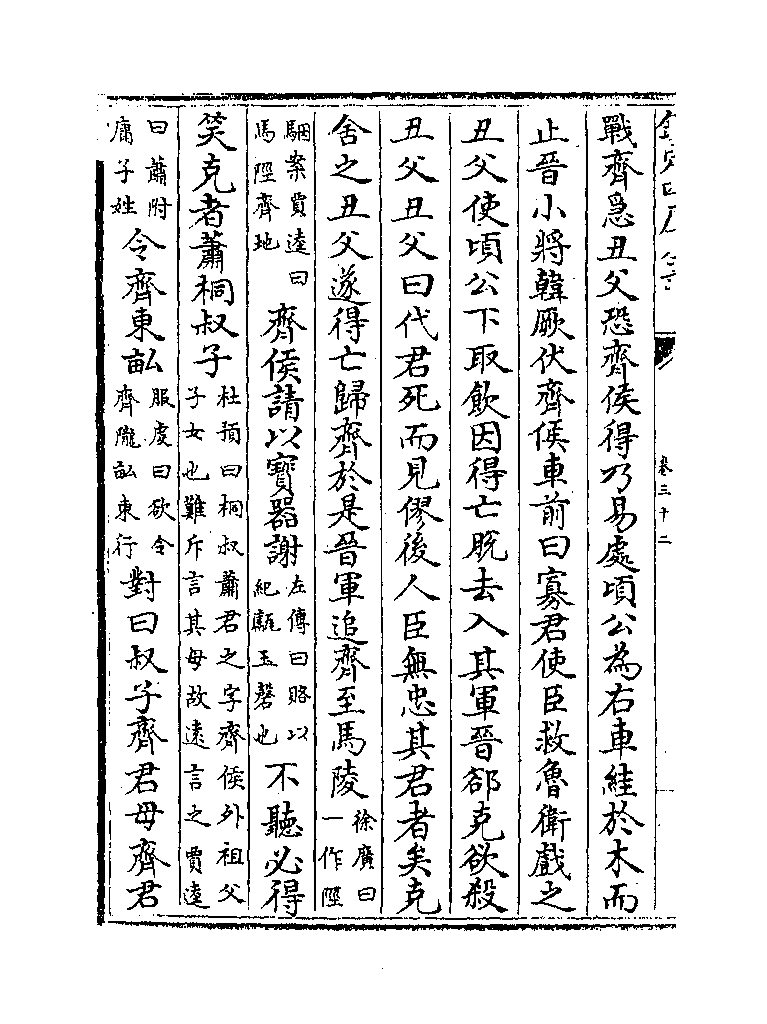 卷三十二
戰齊急丑父恐齊侯得乃易處頃公為右車絓於木而
止晉小將韓厥伏齊侯車前曰寡君使臣救魯衛戲之
丑父使頃公下取飲因得亡脱去入其軍晉郤克欲殺
丑父丑父曰代君死而見僇後人臣無忠其君者矣克
舍之丑父遂得亡歸齊於是晉軍追齊至馬陵徐廣曰一作陘
駰案賈逵曰馬陘齊地齊侯請以寶器謝左傳曰賂以紀甗玉磬也不聽必得
笑克者蕭桐叔子杜預曰桐叔蕭君之字齊侯外祖父子女也難斥言其母故遠言之賈逵
曰蕭附庸子姓令齊東畝服虔曰欲令齊隴畝東行對曰叔子齊君母齊君